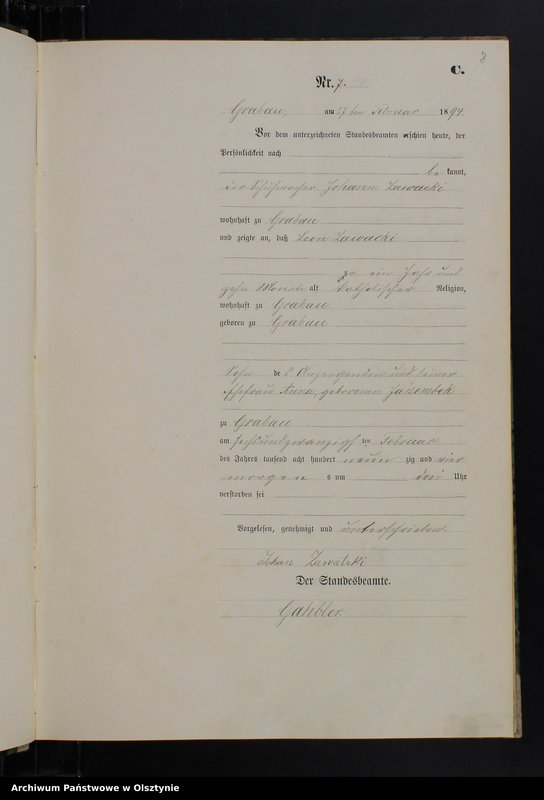 8
C.
Nr. 7.
Grabau, am 27 ten Februar 1894
Vor dem unterzeichneten Standesbeamten erschien heute, der
Persönlichkeit nach
be kannt,
der Schuhmacher Johann Zawacki
wohnhaft zu Grabau
und zeigte an, daß Leon Zawacki
ein Jahr und
zehn Monate alt katholischer Religion,
wohnhaft zu Grabau
geboren zu Grabau
Sohn des Anzeigenden und seiner
Ehefrau Anna, geborenen Jarzembek
zu Grabau
am sechsundzwanzigsten Februar
des Jahres tausend acht hundert neun zig und vier
morgens um drei Uhr
verstorben sei
Vorgelesen, genehmigt und unterschrieben.
Johan Zawatzki
Der Standesbeamte.
Gahbler
Archiwum Państwowe w Olsztynie